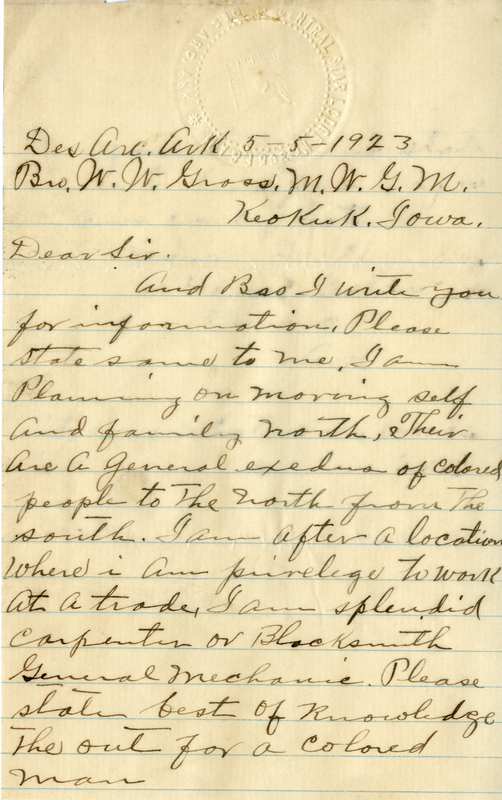 Des Arc. Ark 5-5-1923
Bro. W. W. Gross. M. W. G. M.
Keokuk. Iowa.
Dear Sir.
And Bro I write you
for information, Please
state same to me, I am
Planning on moving self
and family north, Their
are a General exedus of colored
people to the North from the
south. I am after a location
where i am privelege to work
at a trade, I am splendid
carpenter or Blacksmith
General Mechanic. Please
state best of Knowledge
the out for a colored
man